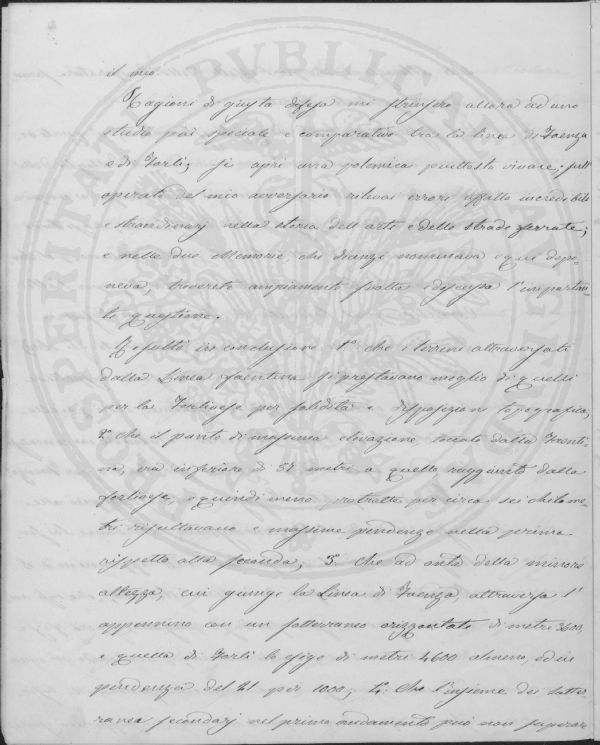 il mio
Ragioni di giusta difesa mi strinsero allora ad uno
studio più speciale e comparativo tra la linea di Faenza
e di Forlì; si aprì una polemica piuttosto vivace; sull'
operato del mio avversario rilevai errori affatto incredibili
e straordinarj nella storia dell'arte e delle strade ferrate;
e nelle due Memorie, che dianzi nominava e qui depo-
neva, troverete ampiamente svolta e discussa l'importan-
te questione.
Risultò in conclusione 1.° che i terreni attraversati
dalla Linea faentina si prestavano meglio di quelli
per la Forlivese per solidità e disposizioni topografica;
2.° che il punto di massima elevazione toccato dalla Faenti-
na, era inferiore di 57 metri a quello raggiunto dalla
forlivese, e quindi meno protratte per circa sei chilome-
tri risultavano e massime pendenze nella prima
rispetto alla seconda; 3.° che ad onta della minore
altezza, cui giunge la Linea di Faenza, attraversa l'
appennino con un sotterraneo orizzontale di metri 3600,
e quella di Forlì lo esige di metri 4600 almeno, ed in
pendenza del 21 per 1000; 4.° che l'insieme dei sotter-
ranei secondarj nel primo andamento può non superare
PUBLICA PROSPERITAS